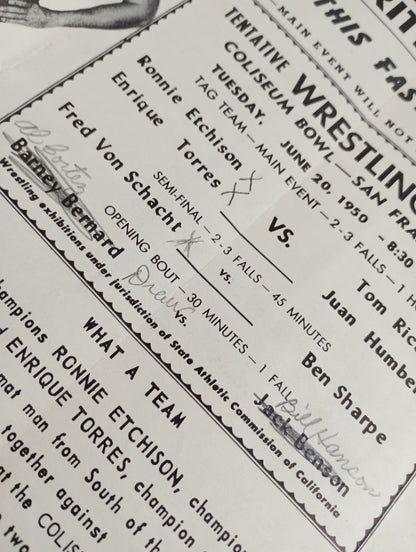 MAIN EVENT WILL NOT
THIS FAS
TENTATIVE WRESTLING
COLISEUM BOWL — SAN FRA
TUESDAY, JUNE 20, 1950 - 8:30
TAG TEAM — MAIN EVENT — 2-3 FALLS — 1
Ronnie Etchison
Enrique Torres XX
vs.
Tom Ric
Juan Humbe
SEMI-FINAL — 2-3 FALLS — 45 MINUTES
Fred Von Schacht X
vs.
Ben Sharpe
OPENING BOUT — 30 MINUTES — 1 FALL
Barney Bernard
Draw
vs.
Jack Benson
Bill Hanson
Wrestling exhibitions under jurisdiction of State Athletic Commission of California
WHAT A TEAM
hampions RONNIE ETCHISON, champio
d ENRIQUE TORRES, champion
mat man from South of th
together against
at the COLIS
two